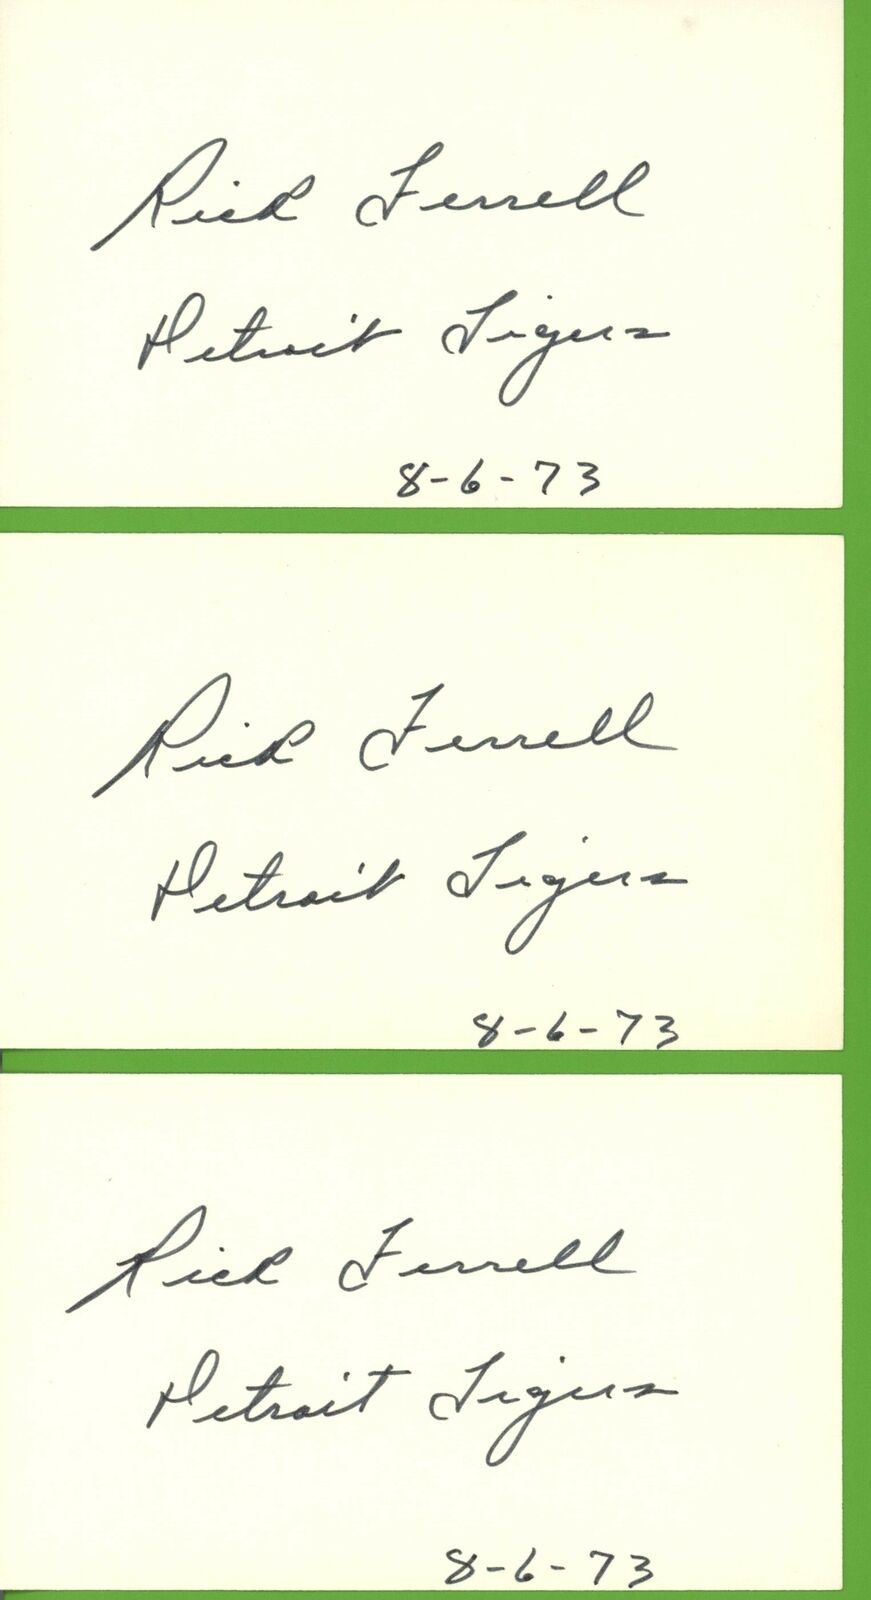 Rick Ferrell
Detroit Tigers
8-6-73
Rick Ferrell
Detroit Tigers
8-6-73
Rick Ferrell
Detroit Tigers
8-6-73